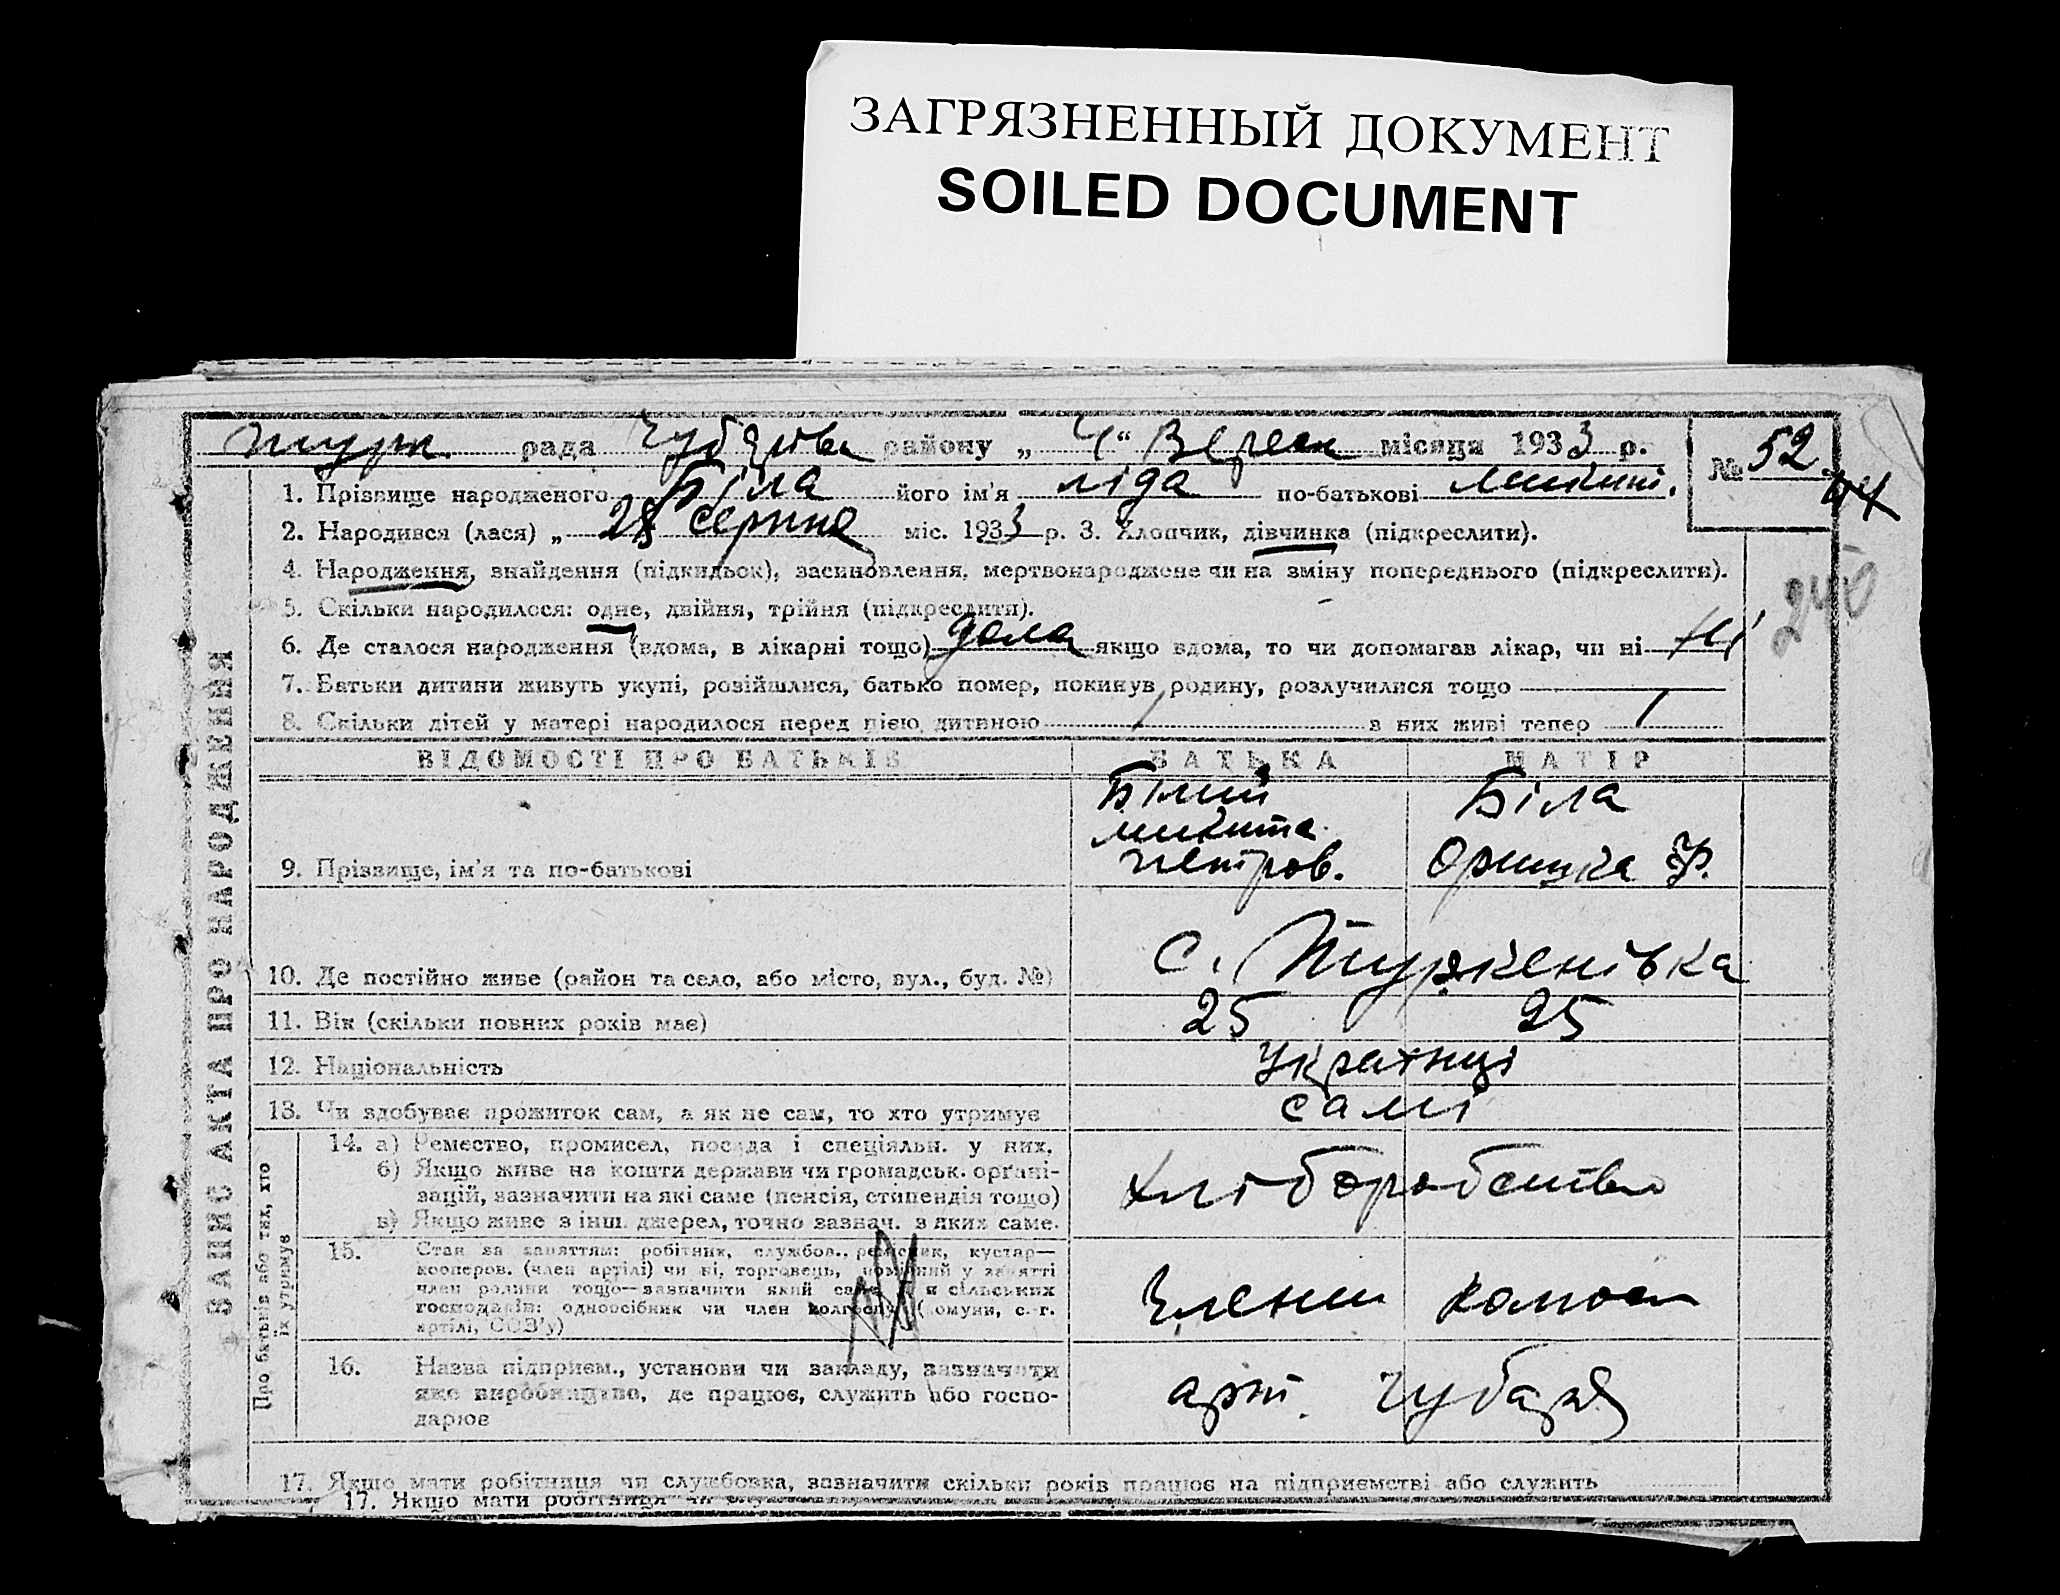 ЗАГРЯЗНЕННЫЙ ДОКУМЕНТ
SOILED DOCUMENT
рада району „ 4 “ Верес місяця 1933 р.
№ 52
1. Прізвище народженого Біла його ім'я Ліда по-батькові Микит.
2. Народився (лася) „ 28 серпня міс. 1933 р. 3. Хлопчик, дівчинка (підкреслити).
4. Народження, знайдення (підкидьок), засиновлення, мертвонароджене чи на зміну попереднього (підкреслити).
240
5. Скільки народилося: одне, двійня, трійня (підкреслити).
6. Де сталося народження (вдома, в лікарні тощо) дома якщо вдома, то чи допомагав лікар, чи ні ні
7. Батьки дитини живуть укупі, розійшлися, батько помер, покинув родину, розлучилися тощо
8. Скільки дітей у матері народилося перед цією дитиною 1 з них живі тепер 1
ВІДОМОСТІ ПРО БАТЬКІВ БАТЬКА МАТІР
Білий Біла
Микита
9. Прізвище, ім'я та по-батькові Петров. Оришка Ф.
10. Де постійно живе (район та село, або місто, вул., буд. №) С. Туркенівка
11. Вік (скільки повних років має) 25 25
12. Національність Українці
13. Чи здобуває прожиток сам, а як не сам, то хто утримує самі
14. а) Ремество, промисел, посада і спеціяльн. у них.
б) Якщо живе на кошти держави чи громадськ. орґані-
зацій, зазначити на які саме (пенсія, стипендія тощо) хліборобство
в) Якщо живе з інш. джерел, точно зазнач. з яких саме.
15. Стан за заняттям: робітник, службов., ремісник, кустар—
кооперов. (член артілі) чи ні, торговець, помічний у занятті
член родини тощо—зазначити який саме. Для сільських
господарів: одноосібник чи член колгоспу (комуни, с.-г.
артілі, СОЗ'у) Члени
16. Назва підприєм., установи чи закладу, зазначити
яке виробництво, де працює, служить або госпо- арт. Чубаря
дарює
17. Якщо мати робітниця чи службовка, зазначити скільки років працює на підприємстві або служить
17. Якщо мати робітниця чи
ЗАПИС АКТА ПРО НАРОДЖЕННЯ
Про батьків або тих, хто
їх утримує